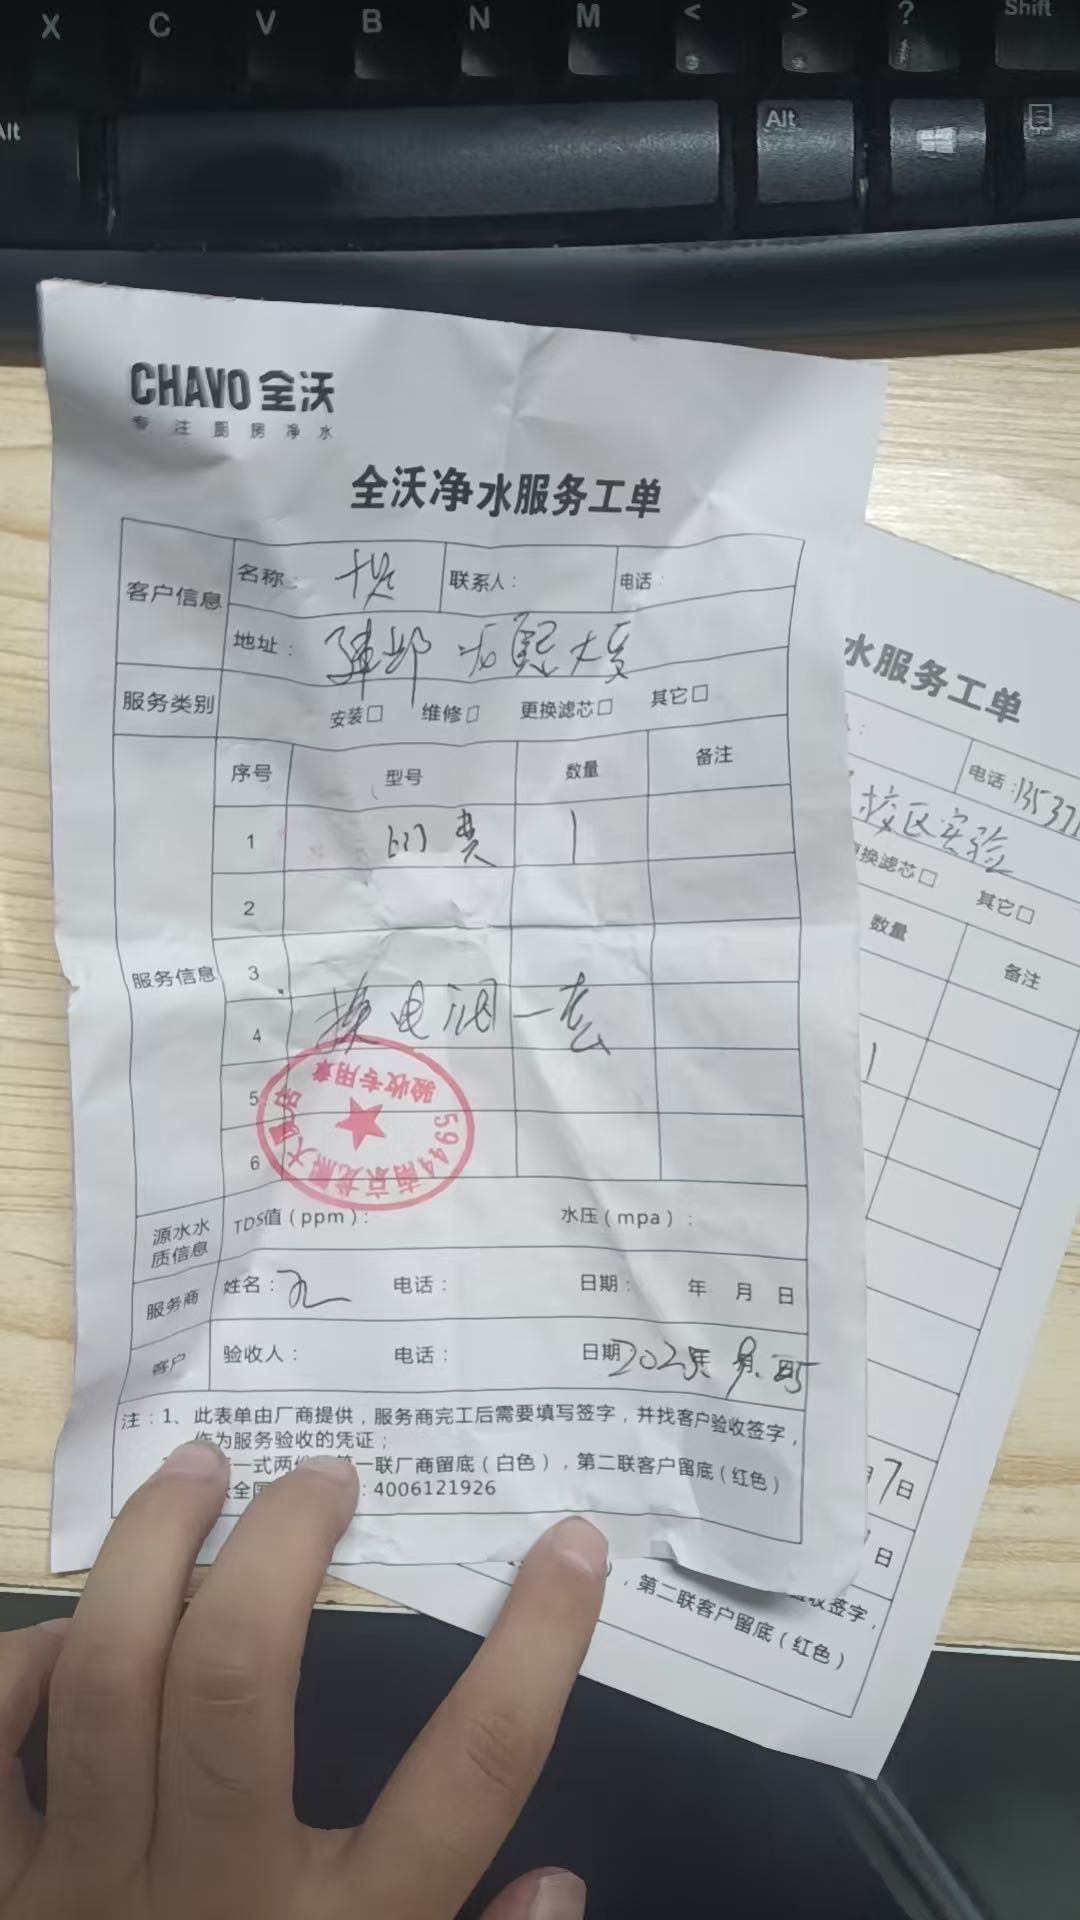 X C V B N M < > ? Shift
Alt Alt
CHAVO 全沃
专注厨房净水
全沃净水服务工单
客户信息 名称： 联系人： 电话：
地址：建邺 龙熙大厦
服务类别 安装□ 维修□ 更换滤芯□ 其它□
服务信息 序号 型号 数量 备注
1 1
2
3
4 换电阀一套
5
6
5944南京龙熙大厦店
验收专用章
源水水质信息 TDS值（ppm）： 水压（mpa）：
服务商 姓名： 电话： 日期： 年 月 日
客户 验收人： 电话： 日期 202 年 月
注：1、此表单由厂商提供，服务商完工后需要填写签字，并找客户验收签字，
作为服务验收的凭证；
一式两份 第一联厂商留底（白色），第二联客户留底（红色）
全国 ：4006121926
水服务工单
电话：135371
校区实验
更换滤芯□ 其它□
数量 备注
1
7日
日
验收签字，
，第二联客户留底（红色）